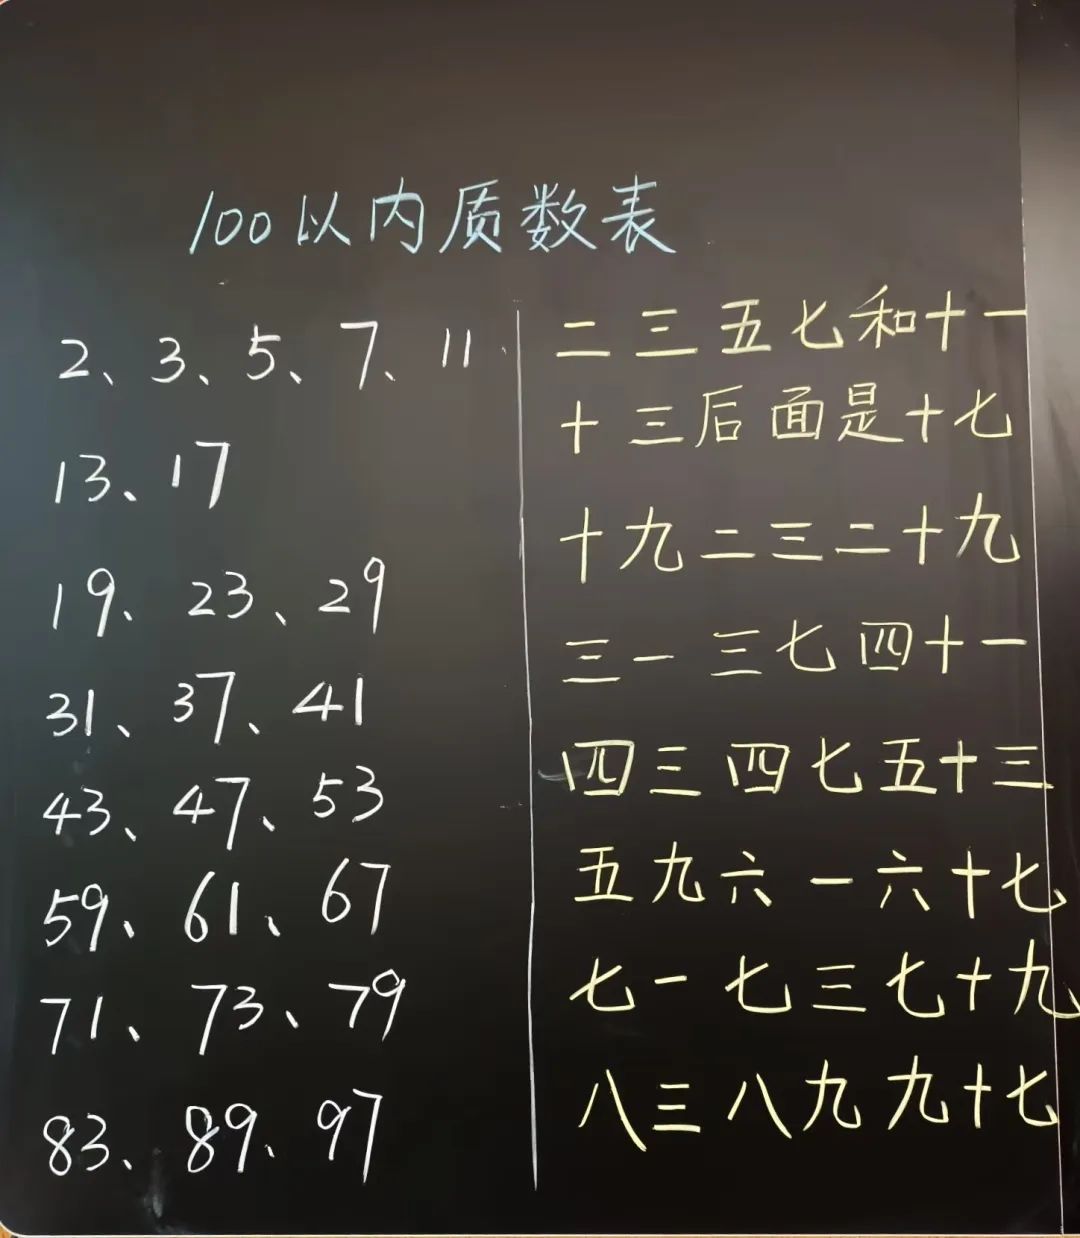 100以内质数表
2、3、5、7、11
二三五七和十一
13、17
十三后面是十七
19、23、29
十九二三二十九
31、37、41
三一三七四十一
43、47、53
四三四七五十三
59、61、67
五九六一六十七
71、73、79
七一七三七十九
83、89、97
八三八九九十七